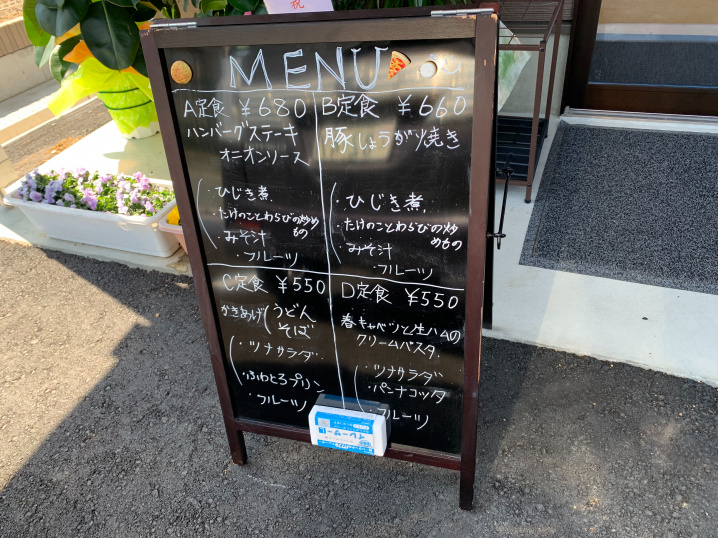 祝
MENU
A定食 ¥680
ハンバーグステーキ
オニオンソース
・ひじき煮
・たけのことわらびの炒め
もの
・みそ汁
・フルーツ
B定食 ¥660
豚しょうが焼き
・ひじき煮
・たけのことわらびの炒
めもの
・みそ汁
・フルーツ
C定食 ¥550
かきあげ(うどん
そば
・ツナサラダ
・ふわとろプリン
・フルーツ
D定食 ¥550
春キャベツと生ハムの
クリームパスタ
・ツナサラダ
・パンナコッタ
・フルーツ
イレーザー